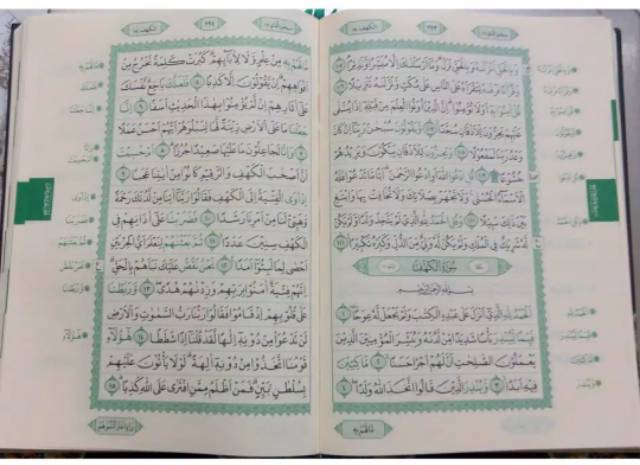 الكهف ١٨
٢٩٣
وَبِالْحَقِّ اَنْزَلْنٰهُ وَبِالْحَقِّ نَزَلَ وَمَآ اَرْسَلْنٰكَ اِلَّا مُبَشِّرًا وَّنَذِيْرًا ١٠٥
وَقُرْاٰنًا فَرَقْنٰهُ لِتَقْرَاَهٗ عَلَى النَّاسِ عَلٰى مُكْثٍ وَّنَزَّلْنٰهُ تَنْزِيْلًا ١٠٦
قُلْ اٰمِنُوْا بِهٖٓ اَوْ لَا تُؤْمِنُوْا اِنَّ الَّذِيْنَ اُوْتُوا الْعِلْمَ مِنْ قَبْلِهٖٓ اِذَا يُتْلٰى
عَلَيْهِمْ يَخِرُّوْنَ لِلْاَذْقَانِ سُجَّدًا ١٠٧ وَّيَقُوْلُوْنَ سُبْحٰنَ رَبِّنَآ اِنْ كَانَ
وَعْدُ رَبِّنَا لَمَفْعُوْلًا ١٠٨ وَيَخِرُّوْنَ لِلْاَذْقَانِ يَبْكُوْنَ وَيَزِيْدُهُمْ
خُشُوْعًا ۩ ١٠٩ قُلِ ادْعُوا اللّٰهَ اَوِ ادْعُوا الرَّحْمٰنَ اَيًّا مَّا تَدْعُوْا فَلَهُ
الْاَسْمَآءُ الْحُسْنٰى وَلَا تَجْهَرْ بِصَلَاتِكَ وَلَا تُخَافِتْ بِهَا وَابْتَغِ
بَيْنَ ذٰلِكَ سَبِيْلًا ١١٠ وَقُلِ الْحَمْدُ لِلّٰهِ الَّذِيْ لَمْ يَتَّخِذْ وَلَدًا وَّلَمْ يَكُنْ
لَّهٗ شَرِيْكٌ فِى الْمُلْكِ وَلَمْ يَكُنْ لَّهٗ وَلِيٌّ مِّنَ الذُّلِّ وَكَبِّرْهُ تَكْبِيْرًا ١١١
سُوْرَةُ الْكَهْفِ
بِسْمِ اللّٰهِ الرَّحْمٰنِ الرَّحِيْمِ
اَلْحَمْدُ لِلّٰهِ الَّذِيْٓ اَنْزَلَ عَلٰى عَبْدِهِ الْكِتٰبَ وَلَمْ يَجْعَلْ لَّهٗ عِوَجًا ١
قَيِّمًا لِّيُنْذِرَ بَاْسًا شَدِيْدًا مِّنْ لَّدُنْهُ وَيُبَشِّرَ الْمُؤْمِنِيْنَ الَّذِيْنَ
يَعْمَلُوْنَ الصّٰلِحٰتِ اَنَّ لَهُمْ اَجْرًا حَسَنًا ٢ مَّاكِثِيْنَ
فِيْهِ اَبَدًا ٣ وَّيُنْذِرَ الَّذِيْنَ قَالُوا اتَّخَذَ اللّٰهُ وَلَدًا ٤
مَا لَهُمْ بِهٖ
الكهف ١٨
٢٩٤
مَا لَهُمْ بِهٖ مِنْ عِلْمٍ وَّلَا لِاٰبَآئِهِمْ كَبُرَتْ كَلِمَةً تَخْرُجُ مِنْ
اَفْوَاهِهِمْ اِنْ يَّقُوْلُوْنَ اِلَّا كَذِبًا ٥ فَلَعَلَّكَ بَاخِعٌ نَّفْسَكَ
عَلٰٓى اٰثَارِهِمْ اِنْ لَّمْ يُؤْمِنُوْا بِهٰذَا الْحَدِيْثِ اَسَفًا ٦ اِنَّا
جَعَلْنَا مَا عَلَى الْاَرْضِ زِيْنَةً لَّهَا لِنَبْلُوَهُمْ اَيُّهُمْ اَحْسَنُ عَمَلًا
٧ وَاِنَّا لَجَاعِلُوْنَ مَا عَلَيْهَا صَعِيْدًا جُرُزًا ٨ اَمْ حَسِبْتَ
اَنَّ اَصْحٰبَ الْكَهْفِ وَالرَّقِيْمِ كَانُوْا مِنْ اٰيٰتِنَا عَجَبًا ٩
اِذْ اَوَى الْفِتْيَةُ اِلَى الْكَهْفِ فَقَالُوْا رَبَّنَآ اٰتِنَا مِنْ لَّدُنْكَ رَحْمَةً
وَّهَيِّئْ لَنَا مِنْ اَمْرِنَا رَشَدًا ١٠ فَضَرَبْنَا عَلٰٓى اٰذَانِهِمْ فِى
الْكَهْفِ سِنِيْنَ عَدَدًا ١١ ثُمَّ بَعَثْنٰهُمْ لِنَعْلَمَ اَيُّ الْحِزْبَيْنِ
اَحْصٰى لِمَا لَبِثُوْٓا اَمَدًا ١٢ نَحْنُ نَقُصُّ عَلَيْكَ نَبَاَهُمْ بِالْحَقِّ
اِنَّهُمْ فِتْيَةٌ اٰمَنُوْا بِرَبِّهِمْ وَزِدْنٰهُمْ هُدًى ١٣ وَّرَبَطْنَا
عَلٰى قُلُوْبِهِمْ اِذْ قَامُوْا فَقَالُوْا رَبُّنَا رَبُّ السَّمٰوٰتِ وَالْاَرْضِ
لَنْ نَّدْعُوَا۟ مِنْ دُوْنِهٖٓ اِلٰهًا لَّقَدْ قُلْنَآ اِذًا شَطَطًا ١٤ هٰٓؤُلَآءِ
قَوْمُنَا اتَّخَذُوْا مِنْ دُوْنِهٖٓ اٰلِهَةً لَوْلَا يَاْتُوْنَ عَلَيْهِمْ
بِسُلْطٰنٍ بَيِّنٍ فَمَنْ اَظْلَمُ مِمَّنِ افْتَرٰى عَلَى اللّٰهِ كَذِبًا ١٥